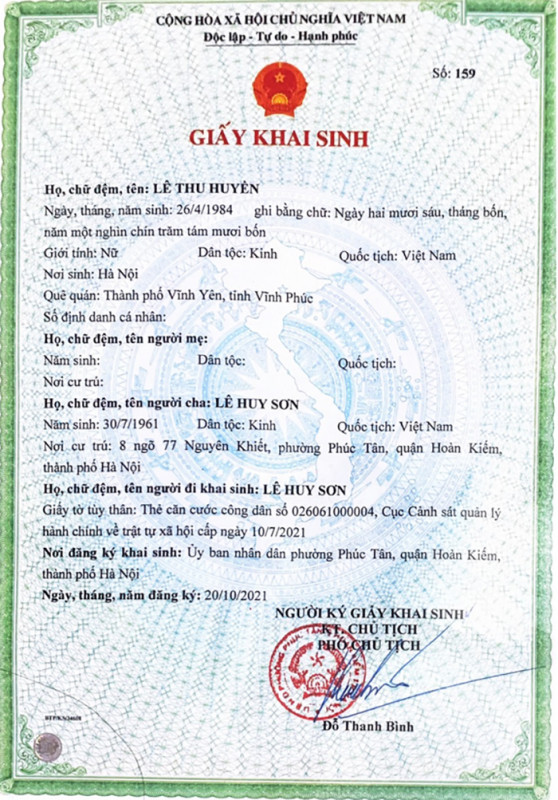 CỘNG HÒA XÃ HỘI CHỦ NGHĨA VIỆT NAM
Độc lập - Tự do - Hạnh phúc
Số: 159
GIẤY KHAI SINH
Họ, chữ đệm, tên: LÊ THU HUYỀN
Ngày, tháng, năm sinh: 26/4/1984 ghi bằng chữ: Ngày hai mươi sáu, tháng bốn,
năm một nghìn chín trăm tám mươi bốn
Giới tính: Nữ Dân tộc: Kinh Quốc tịch: Việt Nam
Nơi sinh: Hà Nội
Quê quán: Thành phố Vĩnh Yên, tỉnh Vĩnh Phúc
Số định danh cá nhân:
Họ, chữ đệm, tên người mẹ:
Năm sinh: Dân tộc: Quốc tịch:
Nơi cư trú:
Họ, chữ đệm, tên người cha: LÊ HUY SƠN
Năm sinh: 30/7/1961 Dân tộc: Kinh Quốc tịch: Việt Nam
Nơi cư trú: 8 ngõ 77 Nguyên Khiết, phường Phúc Tân, quận Hoàn Kiếm,
thành phố Hà Nội
Họ, chữ đệm, tên người đi khai sinh: LÊ HUY SƠN
Giấy tờ tùy thân: Thẻ căn cước công dân số 026061000004, Cục Cảnh sát quản lý
hành chính về trật tự xã hội cấp ngày 10/7/2021
Nơi đăng ký khai sinh: Ủy ban nhân dân phường Phúc Tân, quận Hoàn Kiếm,
thành phố Hà Nội
Ngày, tháng, năm đăng ký: 20/10/2021
NGƯỜI KÝ GIẤY KHAI SINH
KT. CHỦ TỊCH
PHÓ CHỦ TỊCH
Đỗ Thanh Bình